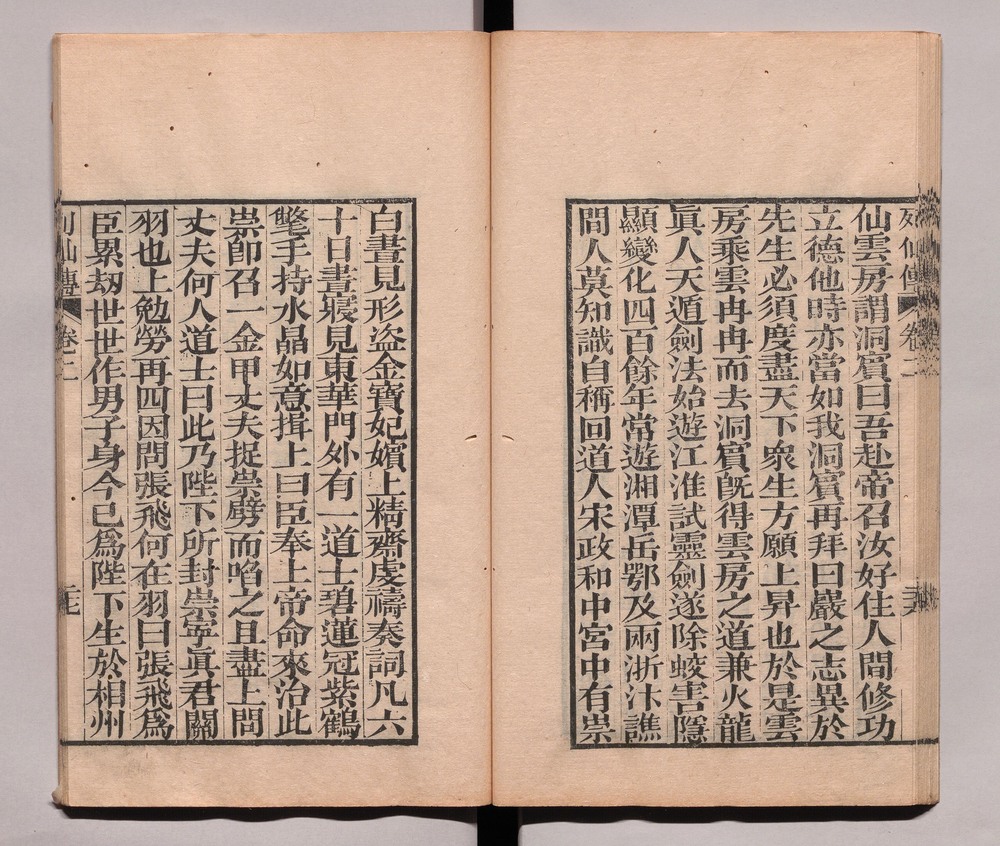 仙雲房謂洞賔曰吾赴帝召汝好住人間修功
立德他時亦當如我洞賔再拜曰巖之志異於
先生必須度盡天下衆生方願上昇也於是雲
房乘雲冉冉而去洞賔旣得雲房之道兼火龍
眞人天遁劍法始遊江淮試靈劍遂除蛟害隱
顯變化四百餘年常遊湘潭岳鄂及兩浙汴譙
間人莫知識自稱回道人宋政和中宮中有祟
白晝見形盗金寶妃嬪上精齋虔禱奏詞凡六
十日晝寢見東華門外有一道士碧蓮冠紫鶴
氅手持水晶如意揖上曰臣奉上帝命來治此
祟卽召一金甲丈夫捉祟劈而啗之且盡上問
丈夫何人道士曰此乃陛下所封崇寧眞君關
羽也上勉勞再四因問張飛何在羽曰張飛爲
臣累刼世世作男子身今已爲陛下生於相州
列仙傳 卷二